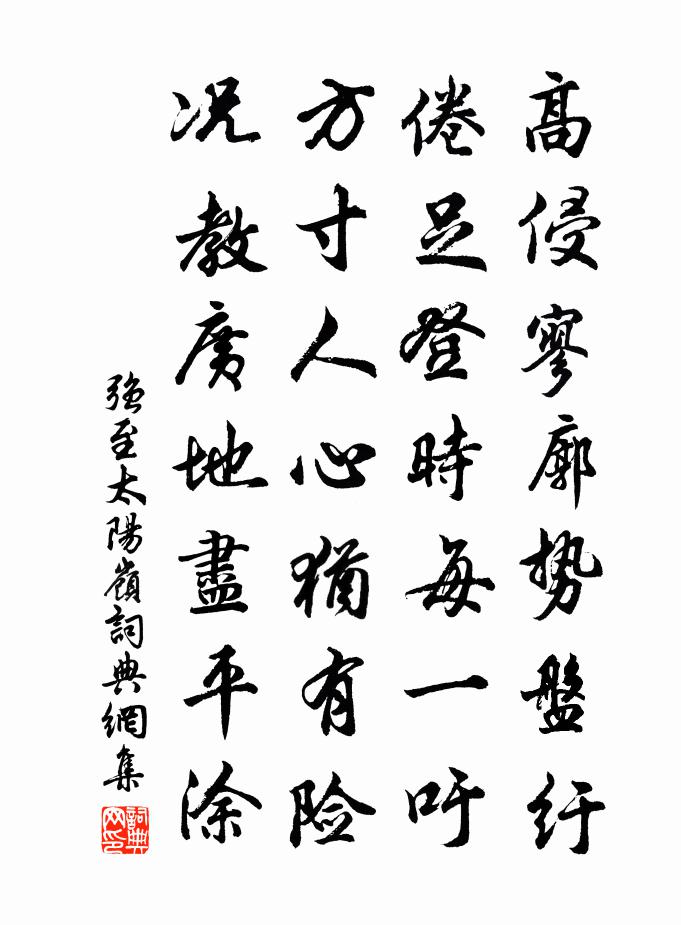 高侵寥廓势盤紆
倦足登時每一吁
方寸人心猶有险
况教廣地盡平涂
强至太陽嶺詞典網集
詞典网印